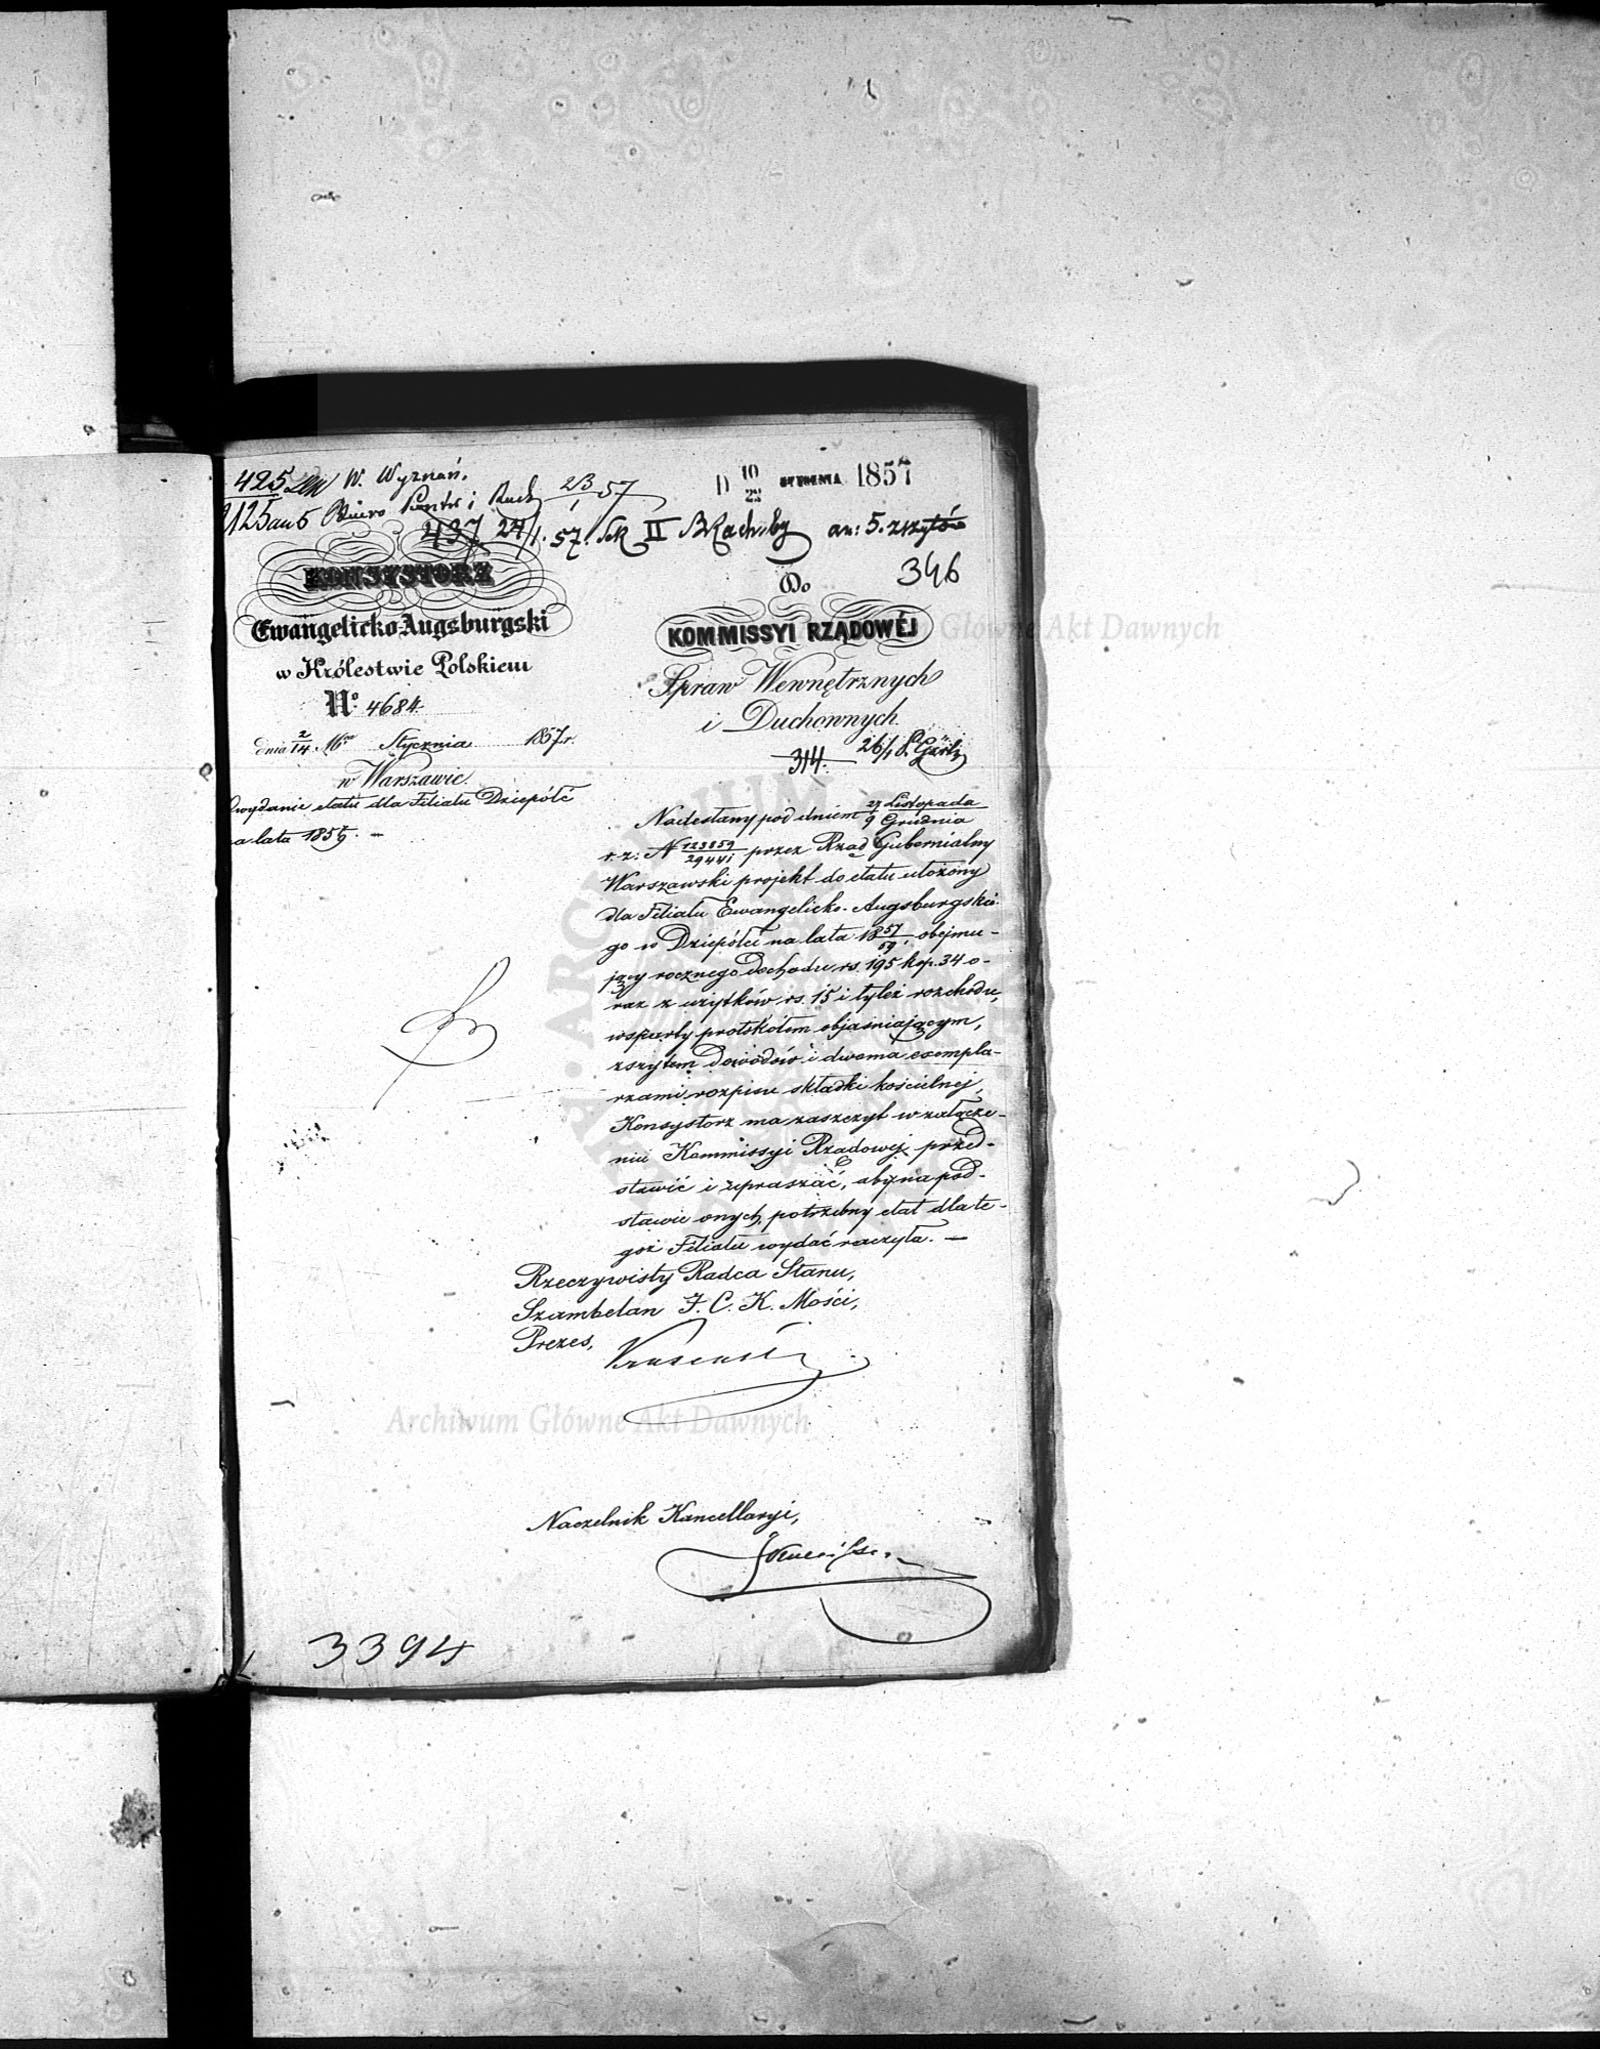 425 W. Wyznań. 23/1 57
D 10/22 STYCZNIA 1857
2125 an 5 Biuro Kontr i Rach
437 24/1. 57. Sek II B Rach-by an: 5. zszytów
346
KONSYSTORZ
Ewangelicko-Augsburgski
w Królestwie Polskiem
Nº 4684.
dnia 2/14 Mca Stycznia 1857 r.
w Warszawie.
O wydanie etatu dla Filiału Dziepółć
na lata 1857/9. —
Do
KOMMISSYI RZĄDOWÉJ
Spraw Wewnętrznych
i Duchownych.
314. 26/1
Nadesłany pod dniem 27 Listopada / 9 Grudnia
r. z: N 123859/29441 przez Rząd Gubernialny
Warszawski projekt do etatu ułożony
dla Filiału Ewangelicko-Augsburgskie-
go w Dziepółci na lata 1857/59, obejmu-
jący rocznego dochodu rs. 195 kop. 34 o-
raz z użytków rs. 15 i tyleż rozchodu,
wsparty protokółem objaśniającym,
zszytem dowodów i dwoma exempla-
rzami rozpisu składki kościelnej,
Konsystorz ma zaszczyt w załącze-
niu Kommissyi Rządowej przed-
stawić i upraszać, aby na pod-
stawie onych, potrzebny etat dla te-
goż Filiału wydać raczyła. —
Rzeczywisty Radca Stanu,
Szambelan J. C. K. Mości,
Prezes,
Naczelnik Kancellaryi,
3394
Archiwum Główne Akt Dawnych